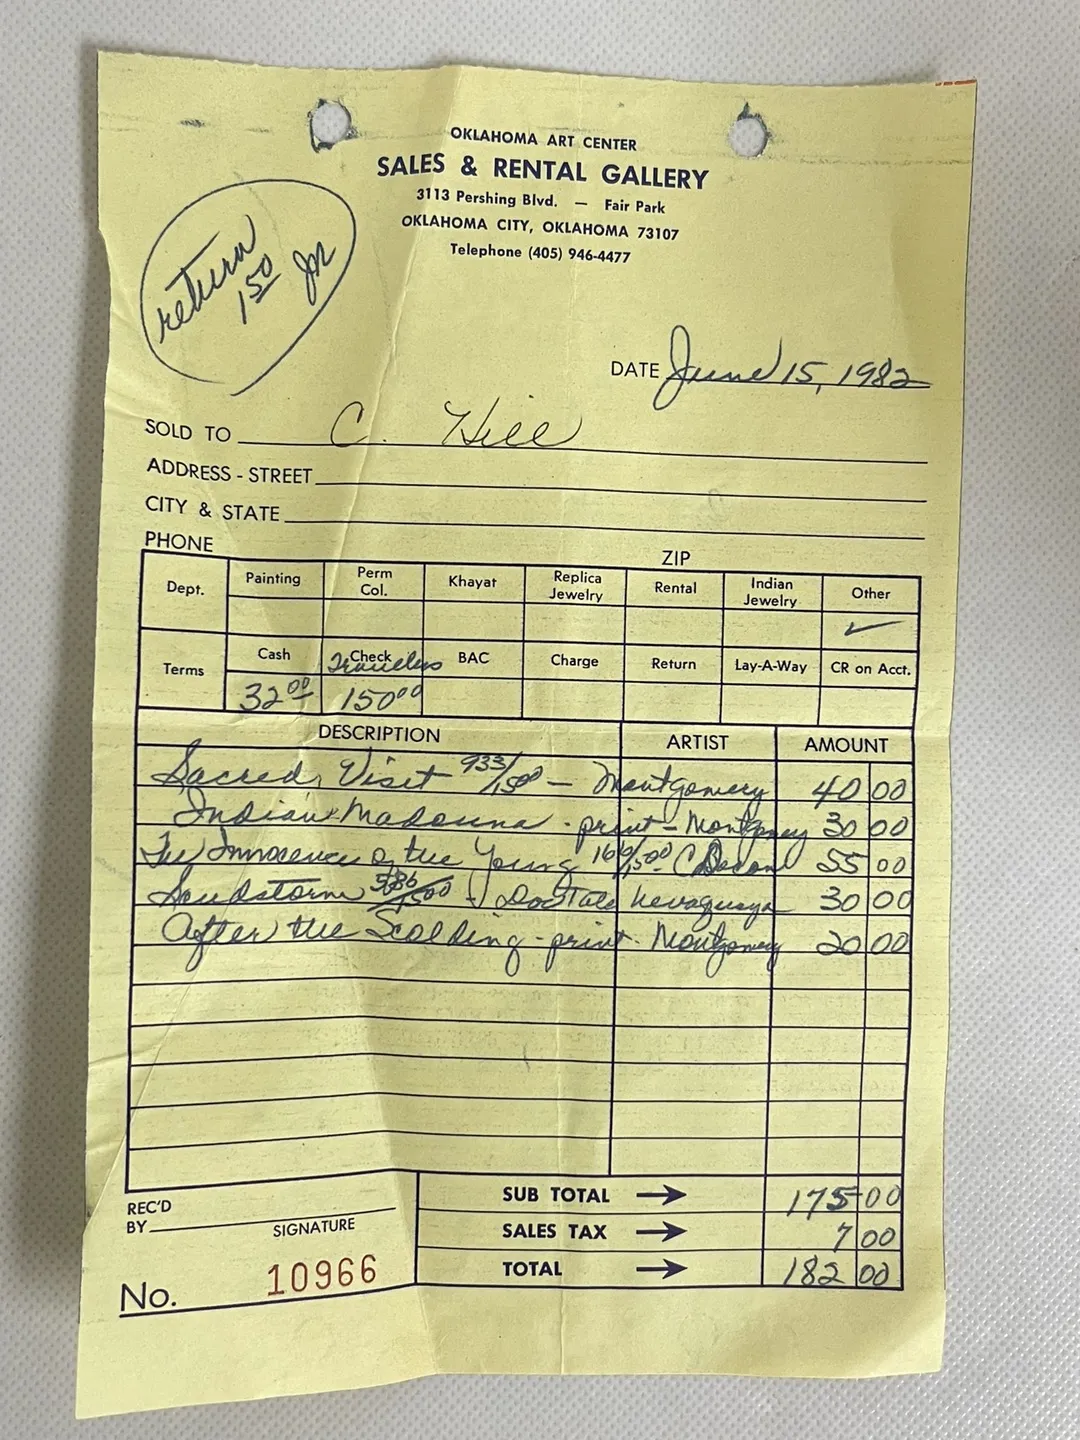 OKLAHOMA ART CENTER
SALES & RENTAL GALLERY
3113 Pershing Blvd. — Fair Park
OKLAHOMA CITY, OKLAHOMA 73107
Telephone (405) 946-4477
return
1 50
DATE June 15, 1982
SOLD TO C. Hill
ADDRESS - STREET
CITY & STATE
PHONE ZIP
Dept. Painting Perm Col. Khayat Replica Jewelry Rental Indian Jewelry Other
✓
Terms Cash Check Travelers BAC Charge Return Lay-A-Way CR on Acct.
32 00 150 00
DESCRIPTION ARTIST AMOUNT
Sacred Visit 933/1500 — Montgomery 40 00
Indian Madonna - print - Montgomery 30 00
The Innocence of the Young 166/1500 C 55 00
Sandstorm 586/1500 - Doc Tate Kevaquaya 30 00
After the Scolding - print - Montgomery 20 00
SUB TOTAL → 175 00
REC'D
BY SIGNATURE
SALES TAX → 7 00
TOTAL → 182 00
No. 10966